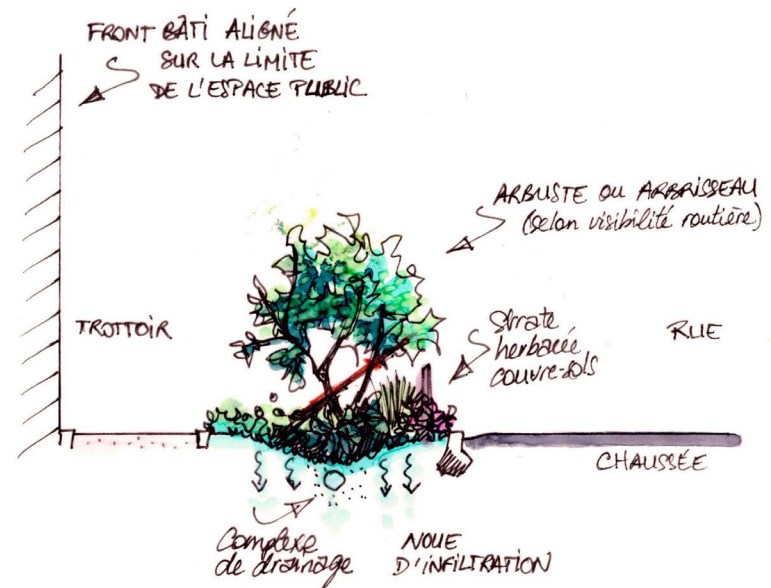 FRONT BÂTI ALIGNÉ
SUR LA LIMITE
DE L'ESPACE PUBLIC
ARBUSTE OU ARBRISSEAU
(selon visibilité routière)
TROTTOIR
Strate
herbacée
couvre-sols
RUE
CHAUSSÉE
Complexe
de drainage
NOUE
D'INFILTRATION